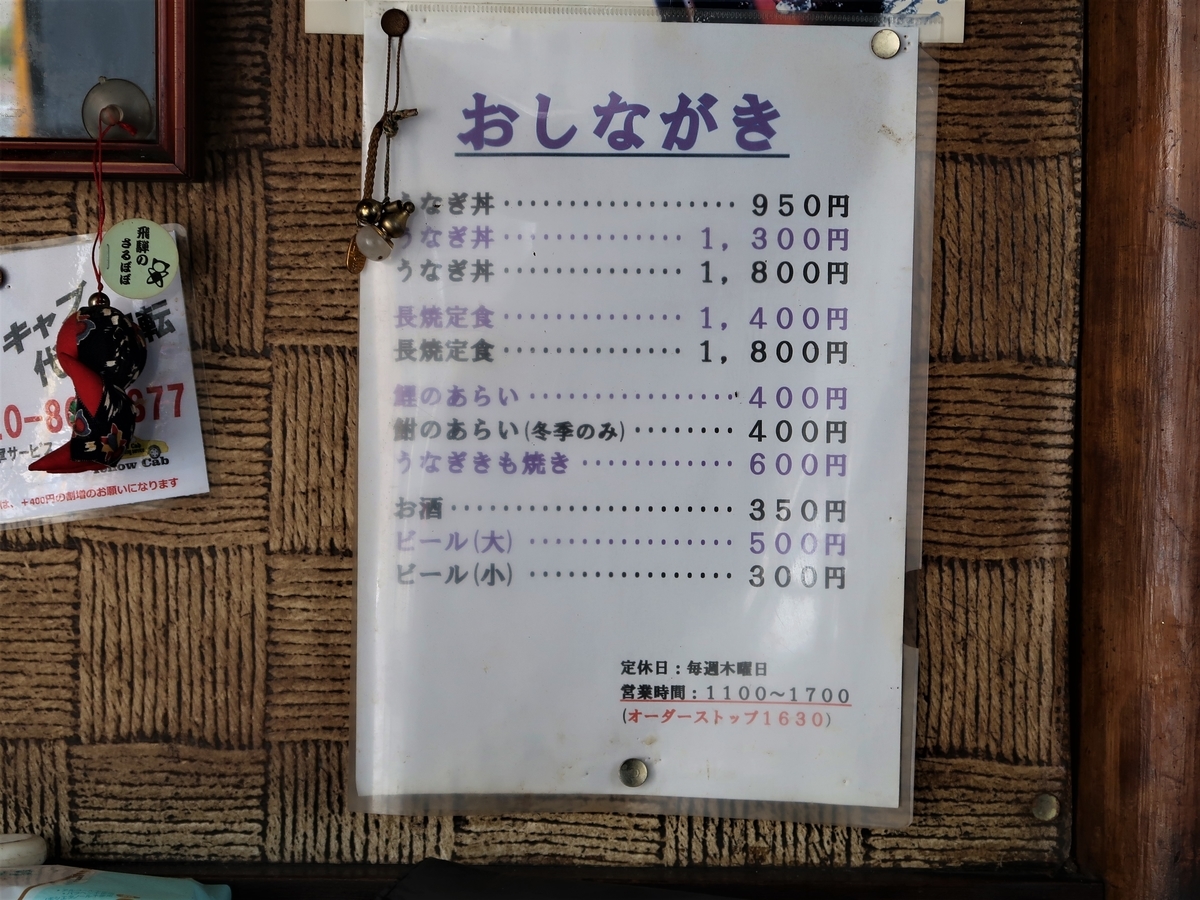 おしながき
うなぎ丼・・・・・・・・・・・・・・・・・・９５０円
うなぎ丼・・・・・・・・・・・・・・１，３００円
うなぎ丼・・・・・・・・・・・・・・１，８００円
長焼定食・・・・・・・・・・・・・・１，４００円
長焼定食・・・・・・・・・・・・・・１，８００円
鯉のあらい・・・・・・・・・・・・・・・・４００円
鮒のあらい(冬季のみ)・・・・・・・・４００円
うなぎきも焼き・・・・・・・・・・・・６００円
お酒・・・・・・・・・・・・・・・・・・・・・・３５０円
ビール(大)・・・・・・・・・・・・・・・・５００円
ビール(小)・・・・・・・・・・・・・・・・３００円
定休日：毎週木曜日
営業時間：１１００～１７００
(オーダーストップ１６３０)
飛騨の
さるぼぼ
キャブ
代 転
877
サービス
Yellow Cab
は、+400円の割増のお願いになります